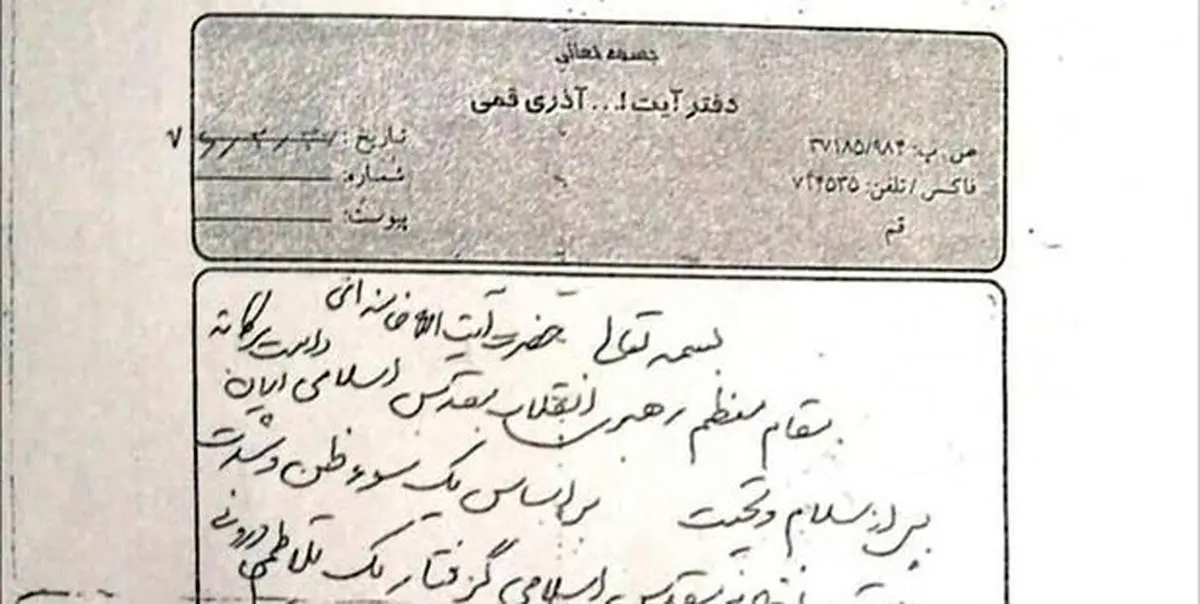 بسمه تعالی
دفتر آیت ا... آذری قمی
ص. پ: ۳۷۱۸۵/۹۸۴
فاکس / تلفن: ۷۴۴۵۳۵
قم
تاریخ:
شماره:
پیوست:
بسمه تعالی حضرت آیت الله خامنه‌ای
مقام معظم رهبری انقلاب مقدس اسلامی ایران دامت برکاته
پس از سلام و تحیت بر اساس یک سوءظن و شدت
مقدس اسلامی گرفتار یک تلاطم درونی